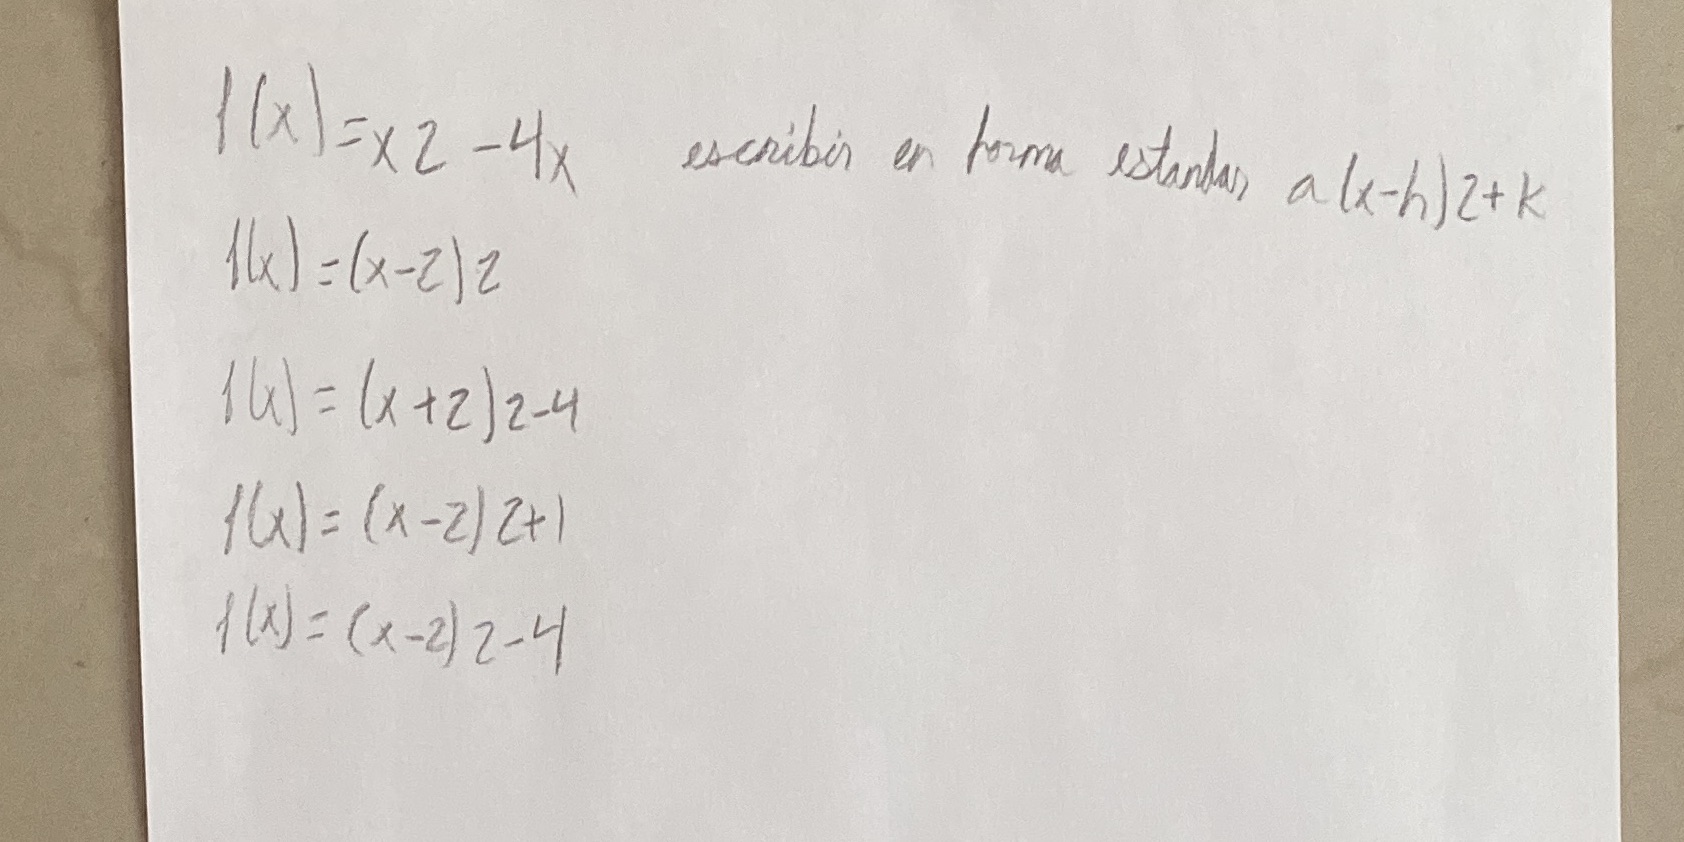 f(x)=x2-4x escribir en forma estandar, a(x-h)2+k
f(x)=(x-2)2
f(x)=(x+2)2-4
f(x)=(x-2)2+1
f(x)=(x-2)2-4